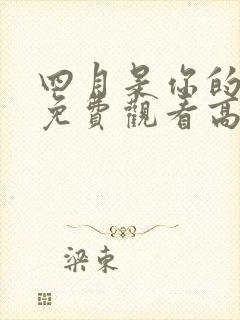 四月是你的
免費觀看高
梁東